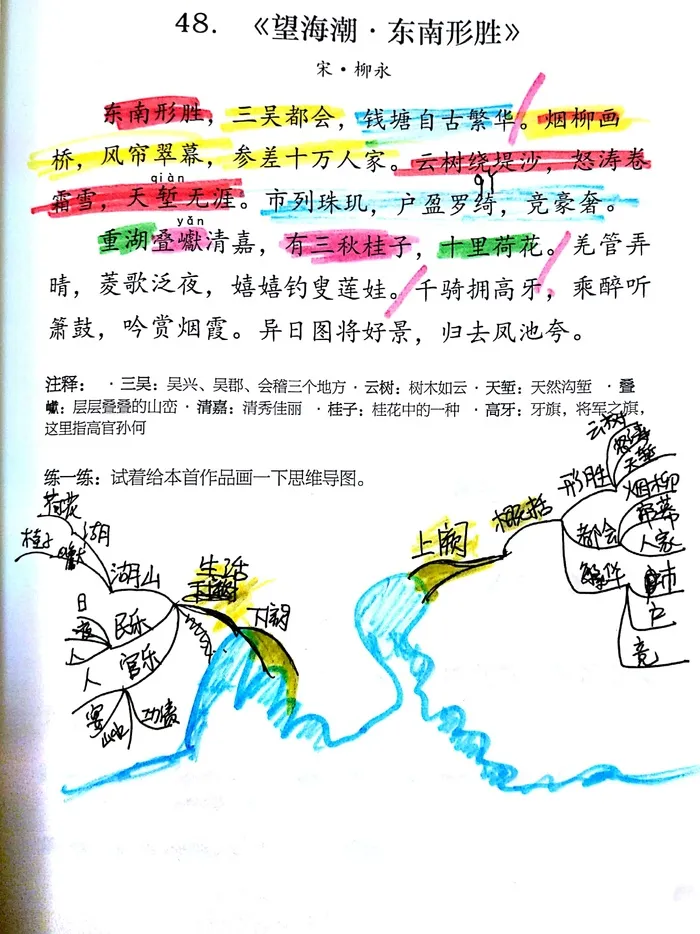 48. 《望海潮·东南形胜》
宋·柳永
东南形胜，三吴都会，钱塘自古繁华。烟柳画
桥，风帘翠幕，参差十万人家。云树绕堤沙，怒涛卷
qiàn
霜雪，天堑无涯。市列珠玑，户盈罗绮，竞豪奢。
yǎn
重湖叠巘清嘉，有三秋桂子，十里荷花。羌管弄
晴，菱歌泛夜，嬉嬉钓叟莲娃。千骑拥高牙，乘醉听
箫鼓，吟赏烟霞。异日图将好景，归去凤池夸。
注释： ·三吴：吴兴、吴郡、会稽三个地方 ·云树：树木如云 ·天堑：天然沟堑 ·叠
巘：层层叠叠的山峦 ·清嘉：清秀佳丽 ·桂子：桂花中的一种 ·高牙：牙旗，将军之旗，
这里指高官孙何
练一练：试着给本首作品画一下思维导图。
上阕
概括
形胜
云树
怒涛
天堑
都会
烟柳
帘幕
人家
繁华
市
户
竞
下阕
生活
湖山
湖
荷花
桂子
民乐
日
夜
人
官乐
人
宴